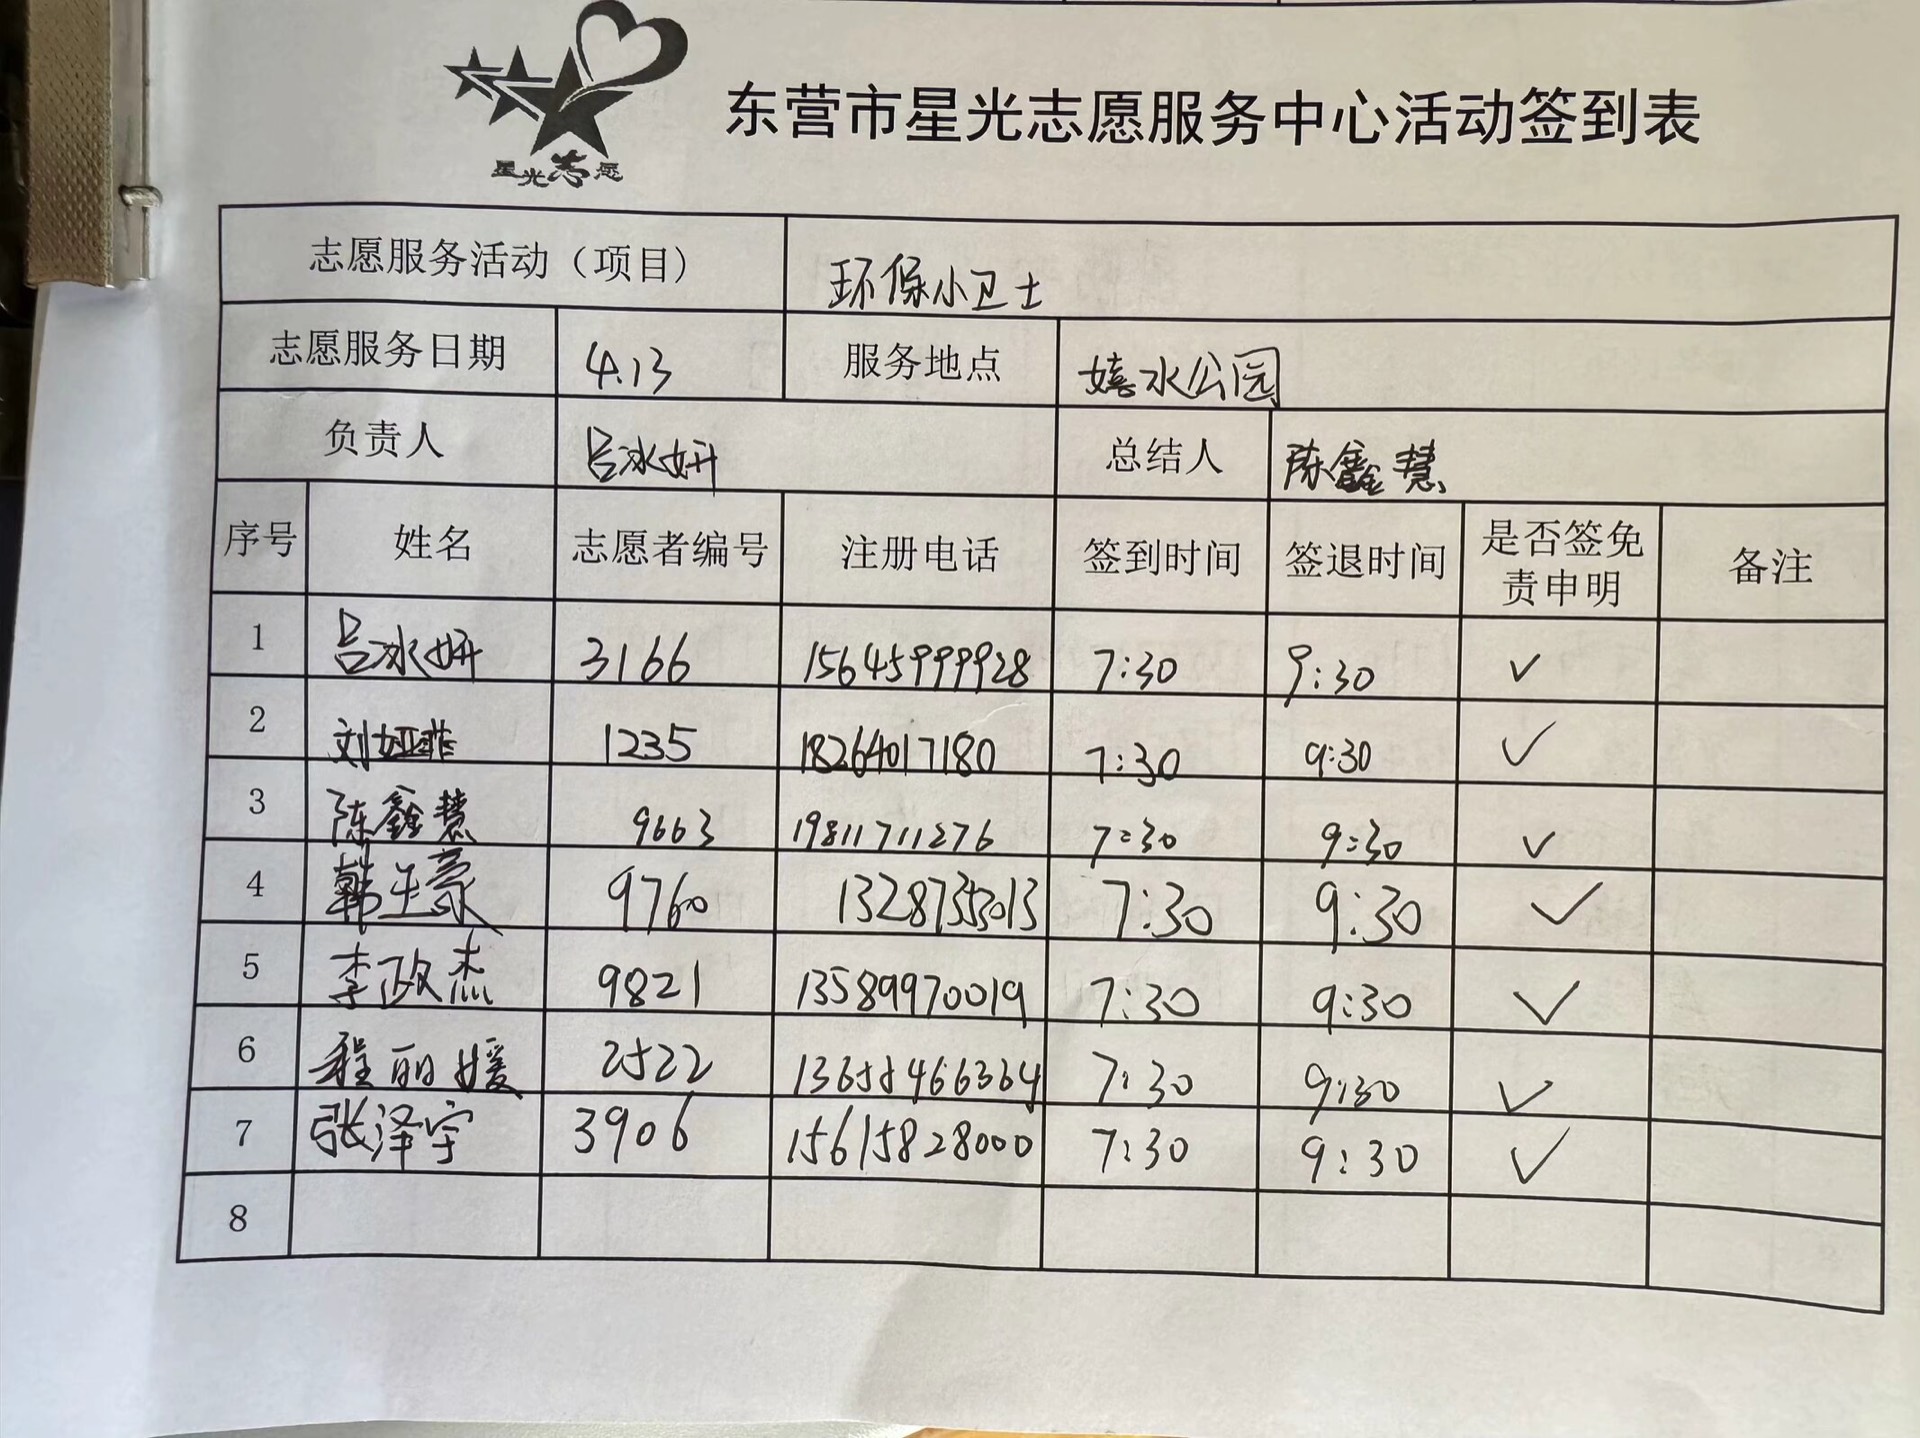 星光志愿
东营市星光志愿服务中心活动签到表
志愿服务活动（项目） 环保小卫士
志愿服务日期 4.13 服务地点 嬉水公园
负责人 吕冰妍 总结人 陈鑫慧
序号 姓名 志愿者编号 注册电话 签到时间 签退时间 是否签免责申明 备注
1 吕冰妍 3166 15645999928 7:30 9:30 ✓
2 刘娅菲 1235 18264017180 7:30 9:30 ✓
3 陈鑫慧 9663 19811711276 7:30 9:30 ✓
4 韩生豪 9760 13287353013 7:30 9:30 ✓
5 李政杰 9821 13589970019 7:30 9:30 ✓
6 程丽媛 2522 13655466364 7:30 9:30 ✓
7 张泽宇 3906 15615828000 7:30 9:30 ✓
8